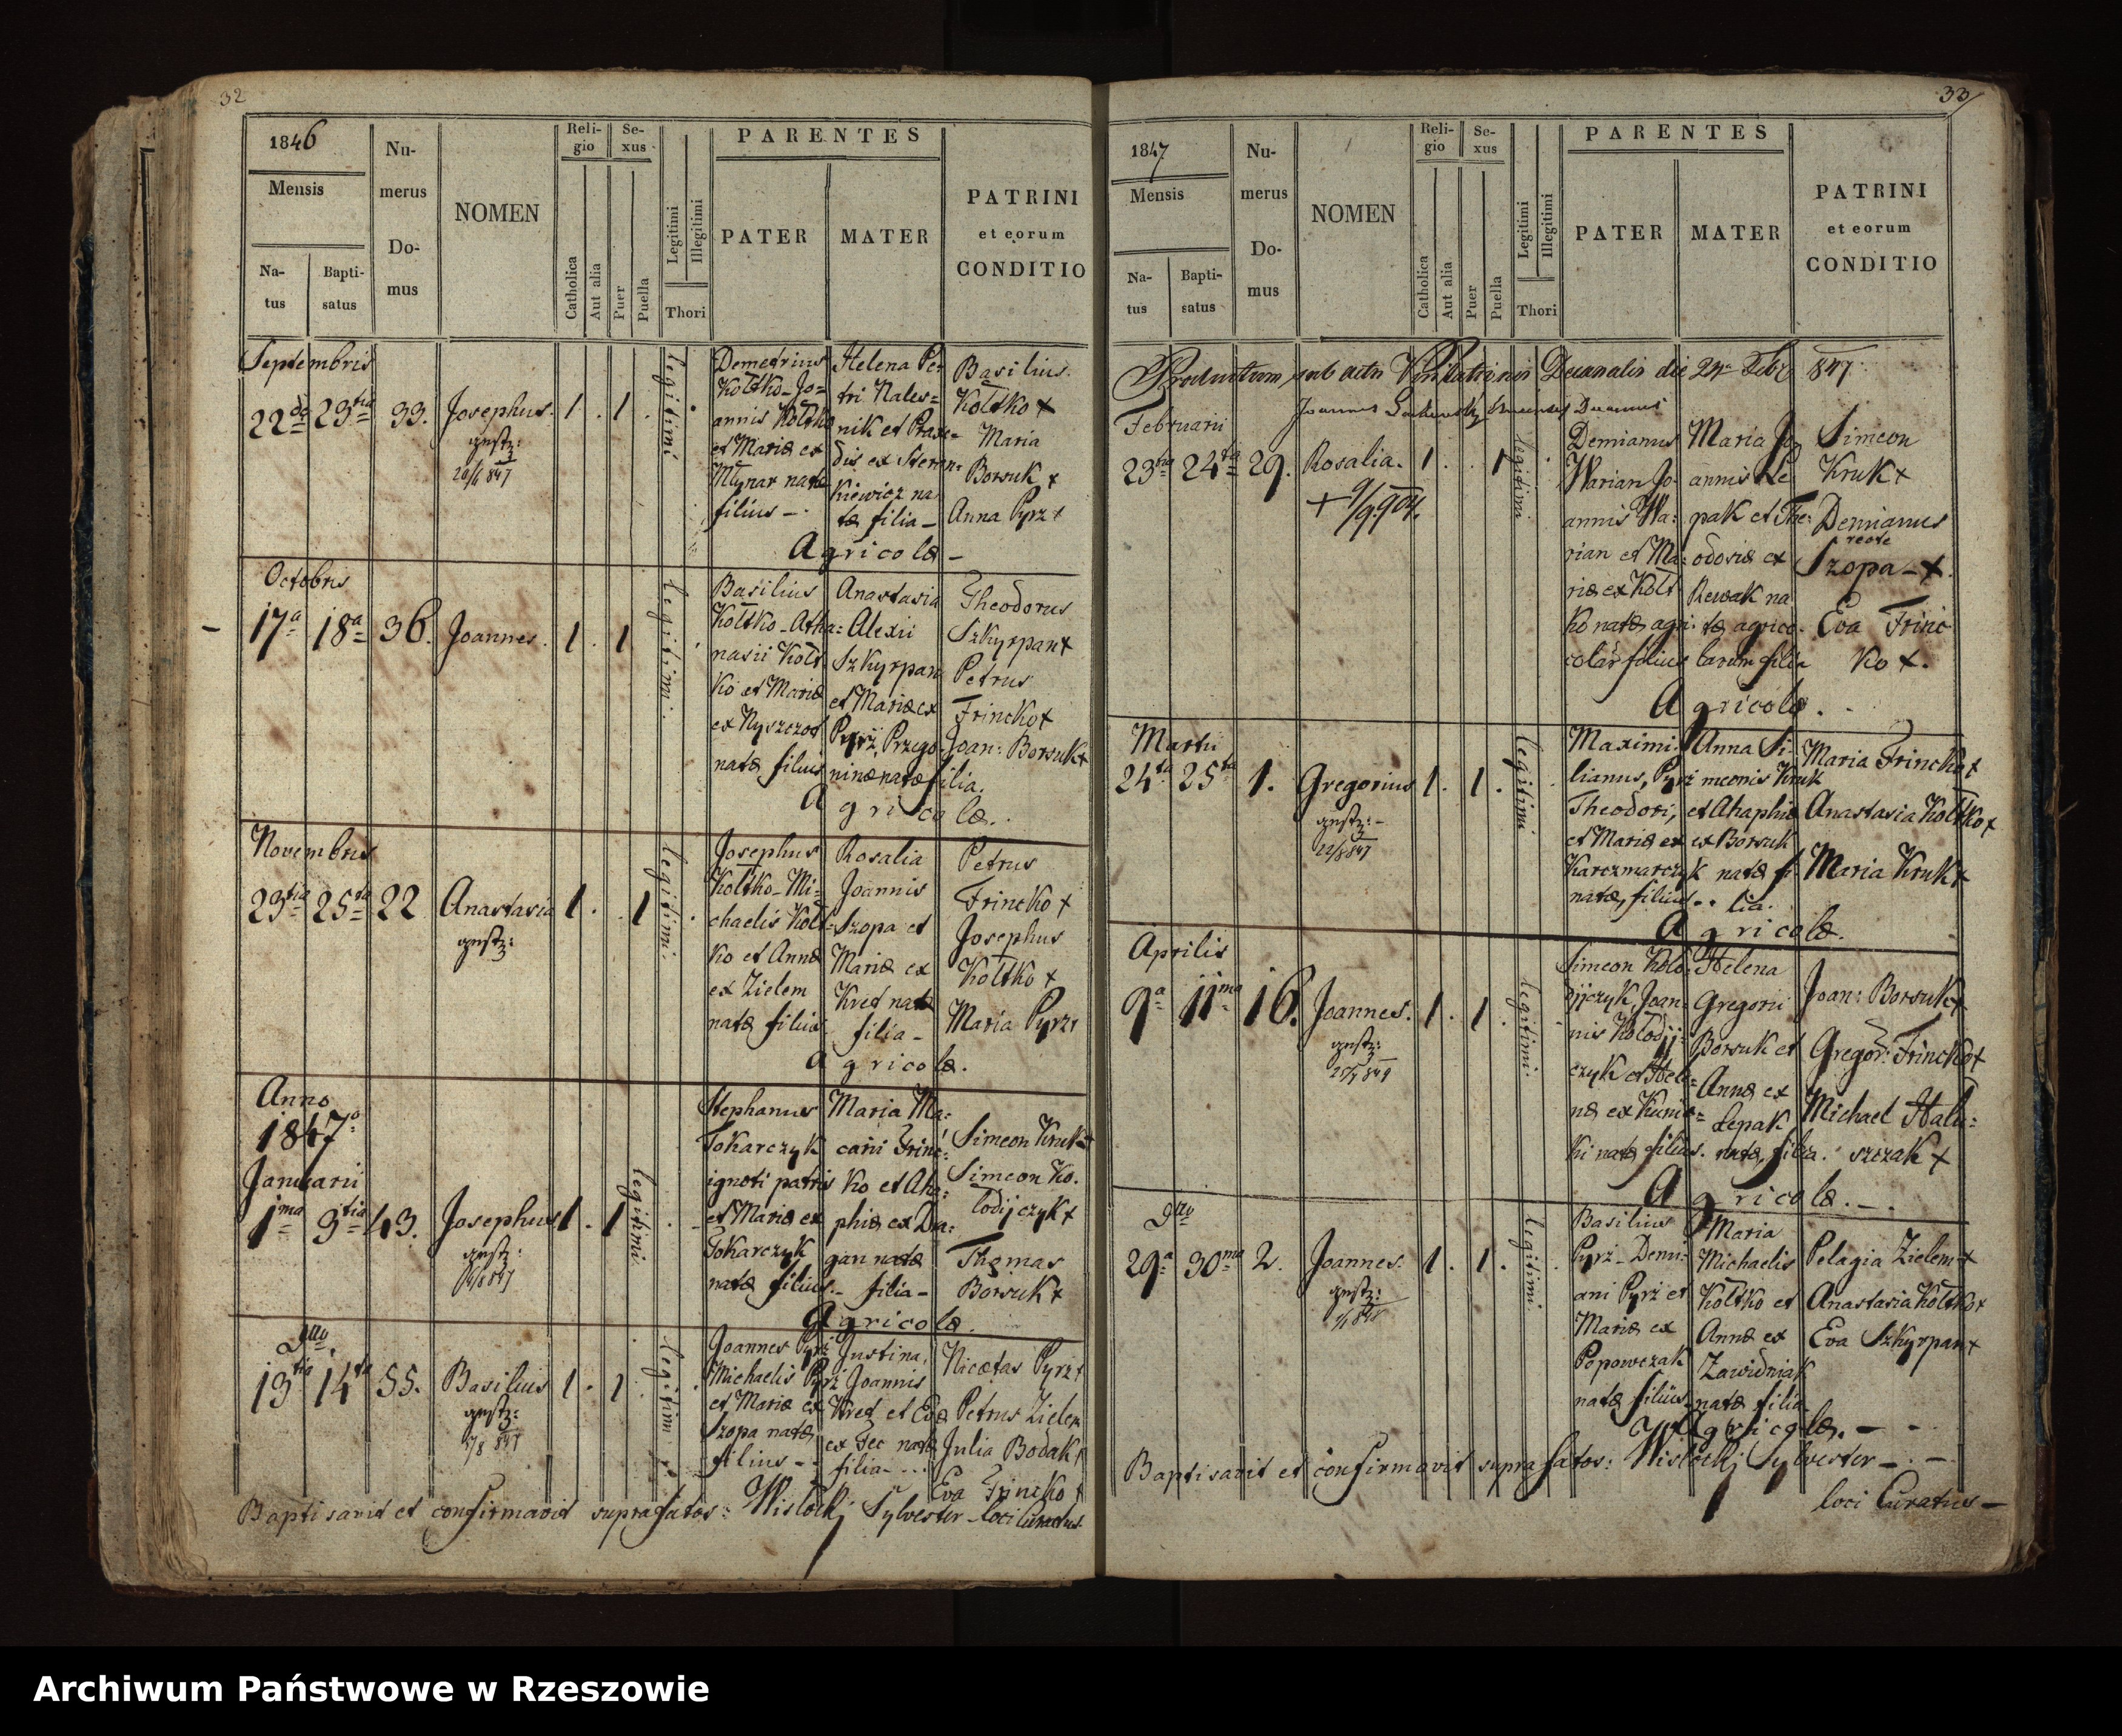 32
1846
Mensis
Na-
tus
Bapti-
satus
Nu-
merus
Do-
mus
NOMEN
Reli-
gio
Catholica
Aut alia
Se-
xus
Puer
Puella
Legitimi
Illegitimi
Thori
PARENTES
PATER
MATER
PATRINI
et eorum
CONDITIO
Septembris
22da 23tia 33. Josephus. 1 . 1 .
legitimi
Demetrius
Kołtko Jo=
annis Kołtko
et Mariæ ex
Młynar natæ
filius -.
Helena Pe=
tri Nales=
nik et Praxe=
dis ex
natæ filia -
Basilius
Kołtko +
Maria
Borsuk +
Anna Pyrz +
Agricolæ -
Octobris
17a 18a 36. Joannes. 1 . 1
legitimi.
Basilius
Kołtko - Atha=
nasii Kołt
ko et Mariæ
ex Nyszczot
natæ filius
Anastasia
Alexii
Szkyrpan
et Mariæ ex
Pyrż, Przego
ninæ natæ filia.
Theodorus
Szkyrpan +
Petrus
Frincko +
Joan: Borsuk +
Agricolæ..
Novembris
23tia 25ta 22 Anastasia 1 . . 1
legitimi.
Josephus
Kołtko - Mi=
chaelis Kołt=
ko et Annæ
ex Zielem
natæ filius
Rosalia
Joannis
Szopa et
Mariæ ex
Kret natæ
filia -
Petrus
Frincko +
Josephus
Kołtko +
Maria Pyrz +
Agricolæ.
Anno
1847o
Januarii
1ma 3tia 43. Josephus 1 . 1
legitimi.
Stephanus
Tokarczyk
ignoti patris
et Mariæ ex
Tokarczyk
natæ filius.-
Maria Ma=
carii Frinc=
ko et Aha=
phiæ ex Da=
gan natæ
filia -
Simeon Kruk +
Simeon Ko.
łodijczyk +
Thomas
Borsuk +
Agricolæ.
Dtto.
13tia 14ta 55. Basilius 1 . 1
legitimi
Joannes Pyrż
Michaelis Pyrż
et Mariæ ex
Szopa natæ
filius - -
Justina,
Joannis
Kret et Evæ
ex Fec natæ
filia - ...
Nicetas Pyrz +
Petrus Zielem
Julia Bodak +
Eva Frincko +
Baptisavit et confirmavit suprafatos: Wisłockj Sylvester - loci Curatus.
33
1847
Mensis
Na-
tus
Bapti-
satus
Nu-
merus
Do-
mus
NOMEN
Reli-
gio
Catholica
Aut alia
Se-
xus
Puer
Puella
Legitimi
Illegitimi
Thori
PARENTES
PATER
MATER
PATRINI
et eorum
CONDITIO
Productum sub actu Visitationis Decanalis die 847
Joannes
Februarii
23tia 24ta 29. Rosalia. 1 . . 1
+ 9/9.904.
legitimi
Demianus
Warian Jo
annis Wa=
rian et Ma=
riæ ex Kołt
ko natæ agri
colar filius
Maria Jo
annis Le
pak et The=
odosiæ ex
Rewak na
tæ agrico.
larum filia
Simeon
Kruk +
Demianus
recte
Szopa - +.
Eva Frinc
ko +.
Agricolæ.
Martii
24ta 25ta 1. Gregorius 1 . 1 .
legitimi
Maximi=
lianus, Pyrż
Theodori,
et Mariæ ex
Karczmarczyk
natæ, filius..
Anna Si=
meonis Kruk
et Ahaphiæ
ex Borsuk
natæ fi
lia.
Maria Frincko +
Anastasia Kołtko +
Maria Kruk +
Agricolæ.
Aprilis
9a 11ma 16. Joannes. 1 . 1 .
legitimi.
Simeon Koło=
dijczyk, Joan=
nis Kołodij=
czyk et Hele=
næ ex Kunic=
ki natæ filius.
Helena
Gregorii
Borsuk et
Annæ ex
Lepak
natæ, filia.
Joan: Borsuk +
Gregor: Frincko +
Michael Halu=
szczak +
Agricolæ.-.
Dtto
29a 30ma 2. Joannes. 1 . 1 .
legitimi.
Basilius
Pyrż - Demi=
ani Pyrż et
Mariæ ex
Popowczak
natæ filius
Maria
Michaelis
Kołtko et
Annæ ex
Zawidniak
natæ filia
Pelagia Zielem +
Anastasia Kołtko +
Eva Szkyrpan +
Agricolæ. -
Baptisavit et confirmavit suprafatos: Wisłockj Sylvester -.-
loci Curatus -
Archiwum Państwowe w Rzeszowie